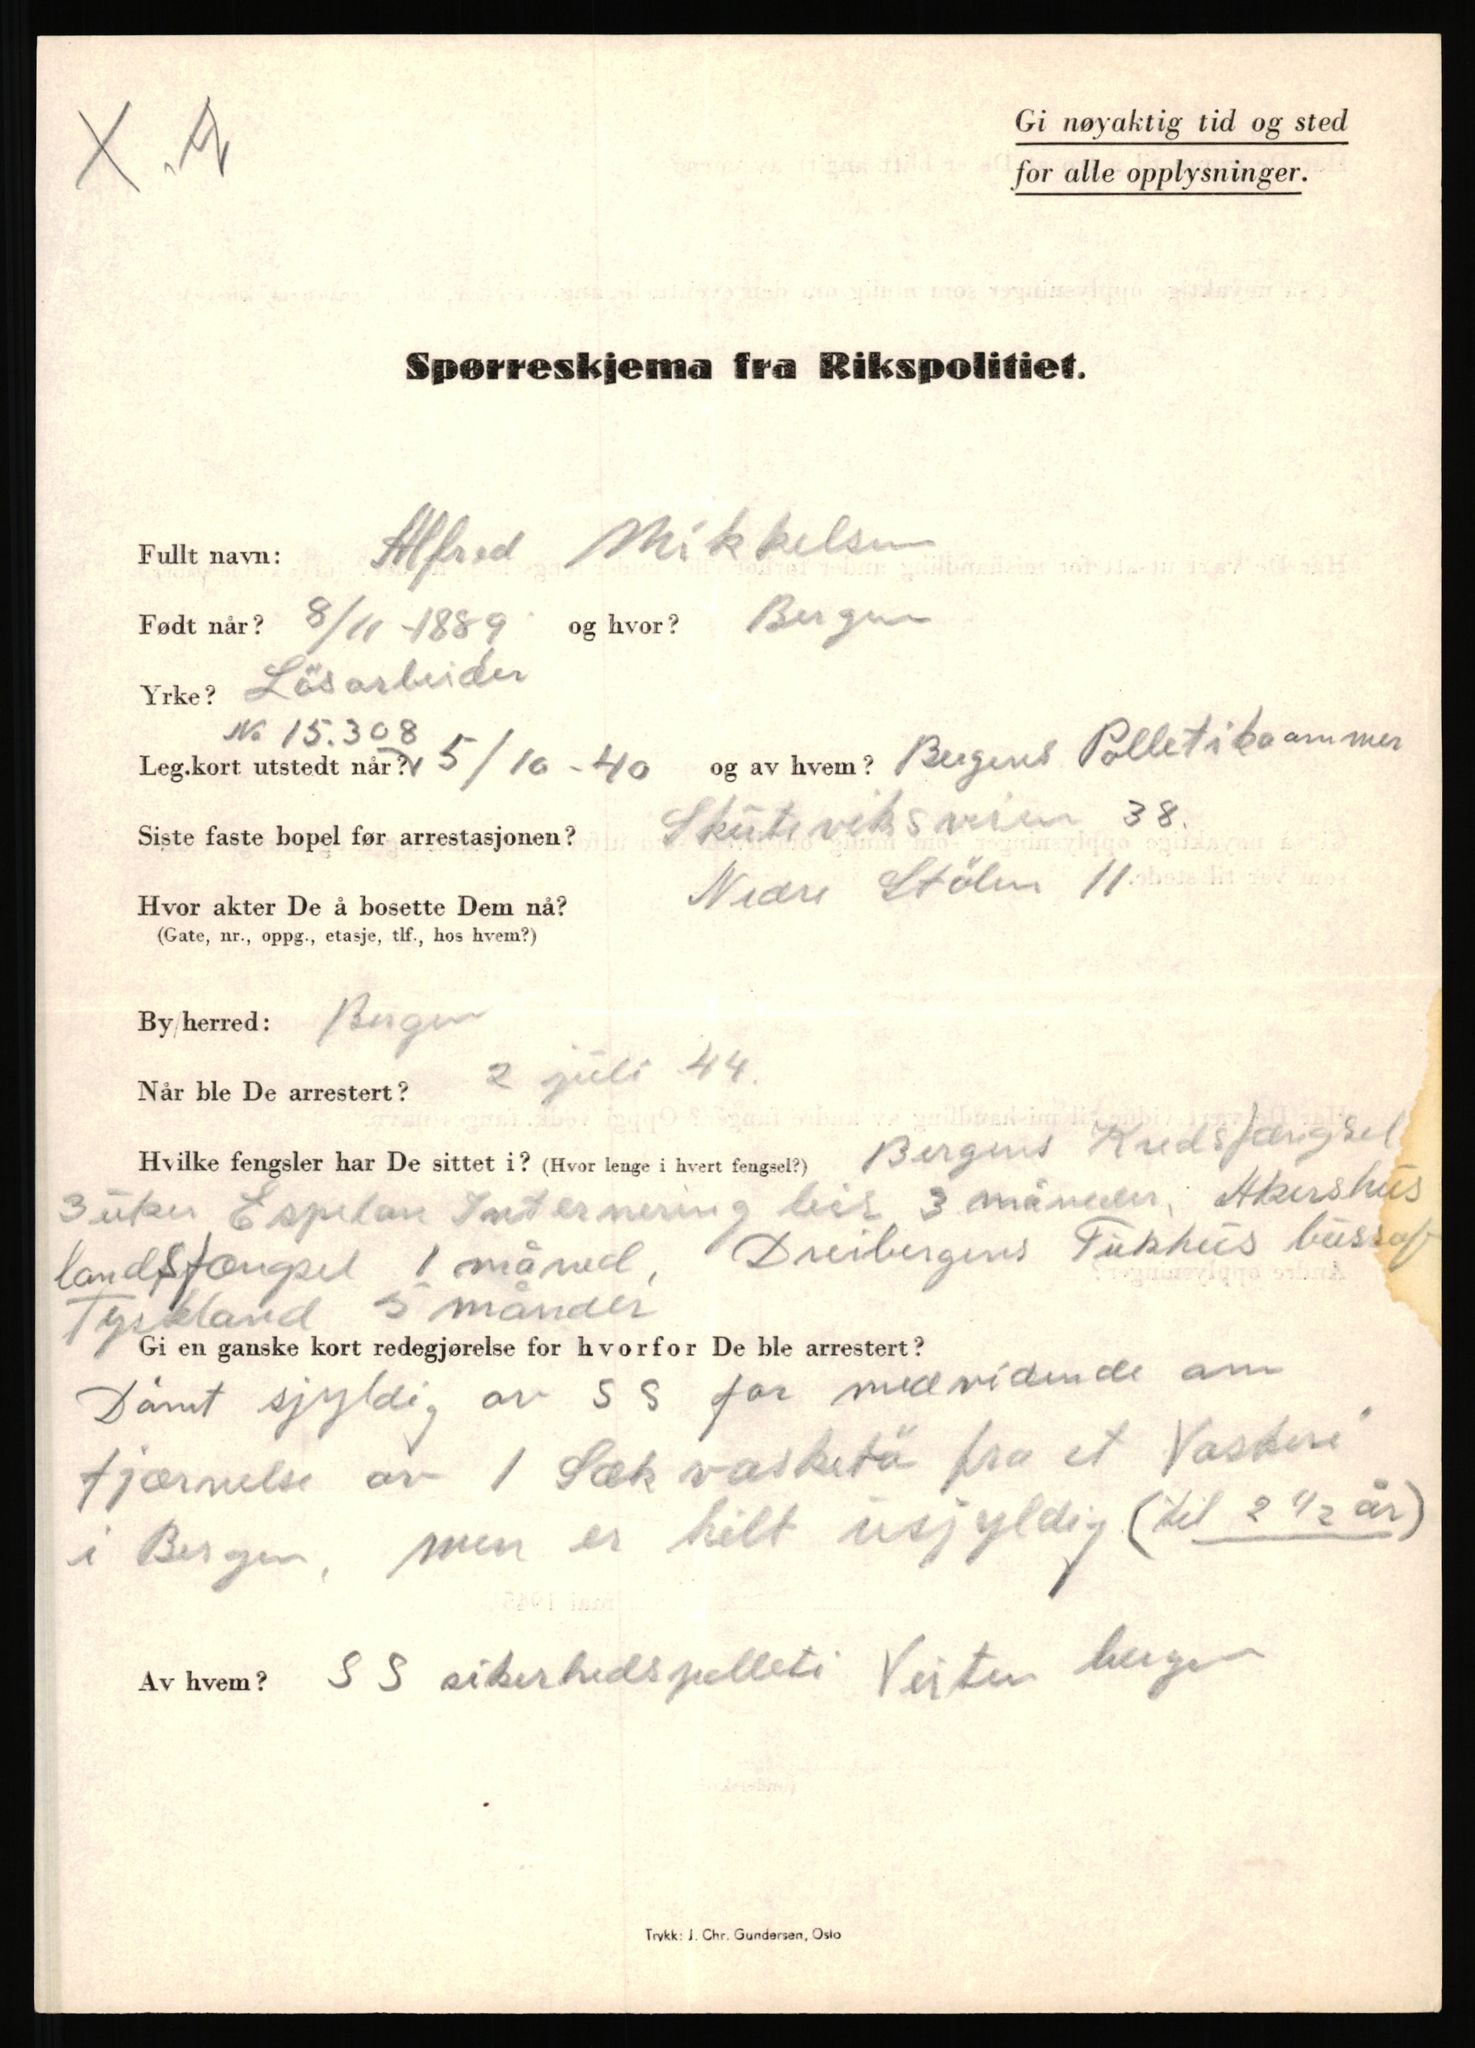 X. A
Gi nøyaktig tid og sted
for alle opplysninger.
Spørreskjema fra Rikspolitiet.
Fullt navn: Alfred Mikkelsen
Født når? 8/11-1889 og hvor? Bergen
Yrke? Lösarbeider
No 15.308
Leg.kort utstedt når? 5/10-40 og av hvem? Bergens Polletikaammer
Siste faste bopel før arrestasjonen? Skuteviksveien 38.
Hvor akter De å bosette Dem nå? Nedre Stölen 11
(Gate, nr., oppg., etasje, tlf., hos hvem?)
By/herred: Bergen
Når ble De arrestert? 2 juli 44.
Hvilke fengsler har De sittet i? (Hvor lenge i hvert fengsel?) Bergens Kredsfængsel
3 uker Espelan Internering leir 3 måneder, Akershus
landsfængsel 1 måned, Dreibergens Tukhus
Tyskland 5 månder
Gi en ganske kort redegjørelse for hvorfor De ble arrestert?
Dømt sjyldig av SS for medvidende om
fjærnelse av 1 Sæk vasketö fra et Vaskeri
i Bergen, men er hilt usjyldig (til 2 1/2 år)
Av hvem? SS sikerhedspolleti Veiten bergen
Trykk: J. Chr. Gundersen, Oslo